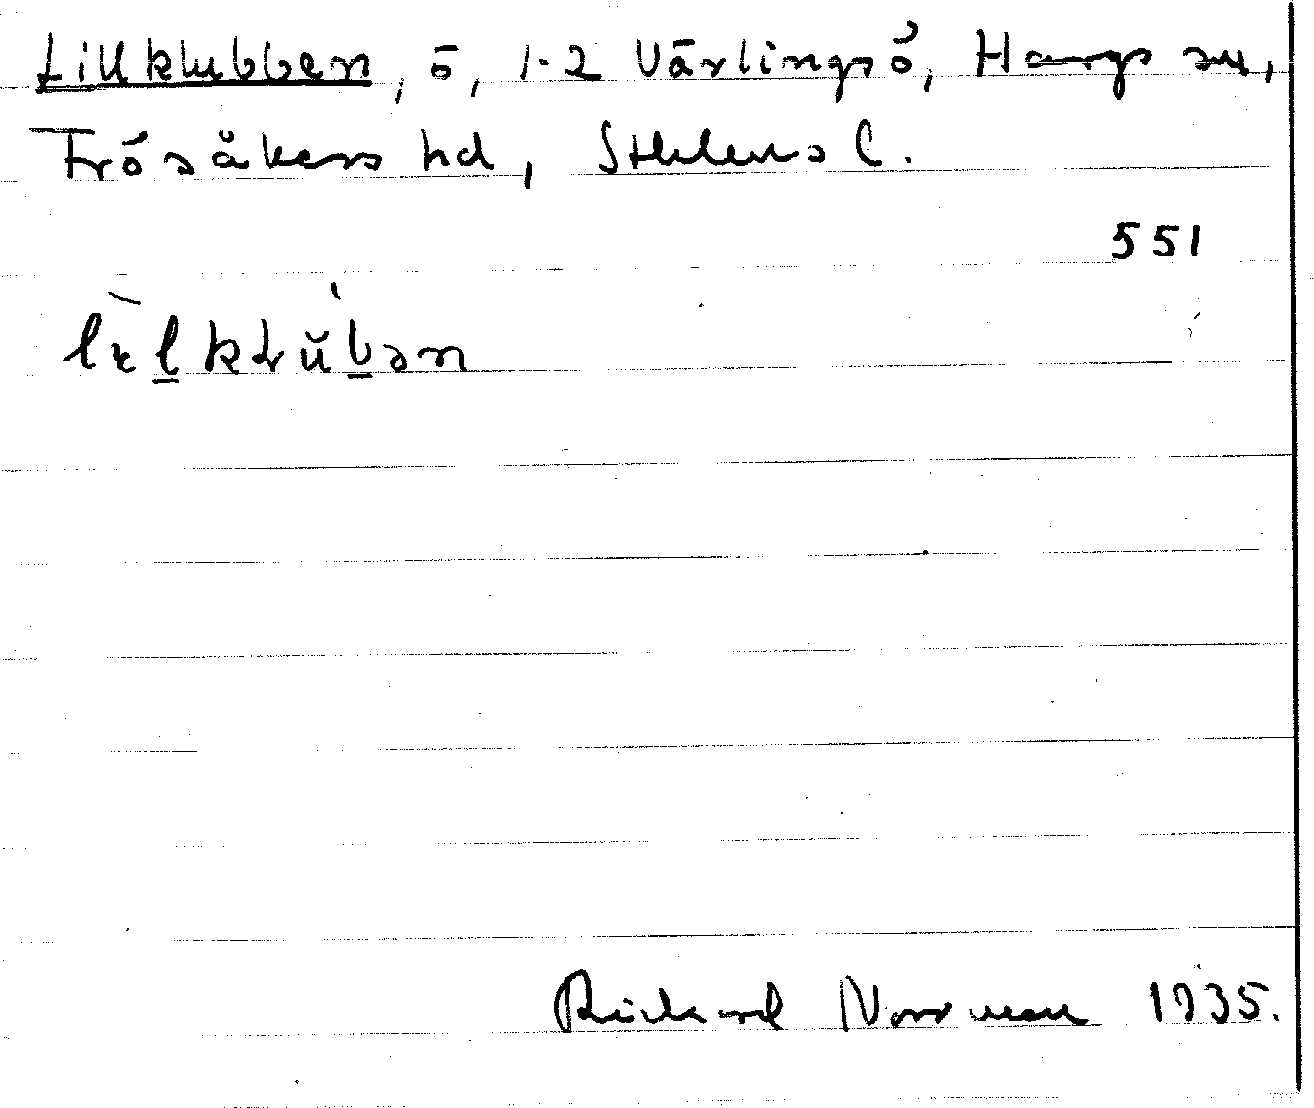 Lillklubben, ö, 1-2 Värlingsö, Hargs sn,
Frösåkers hd, Sthlms l.
551
Richard Norrman 1935.